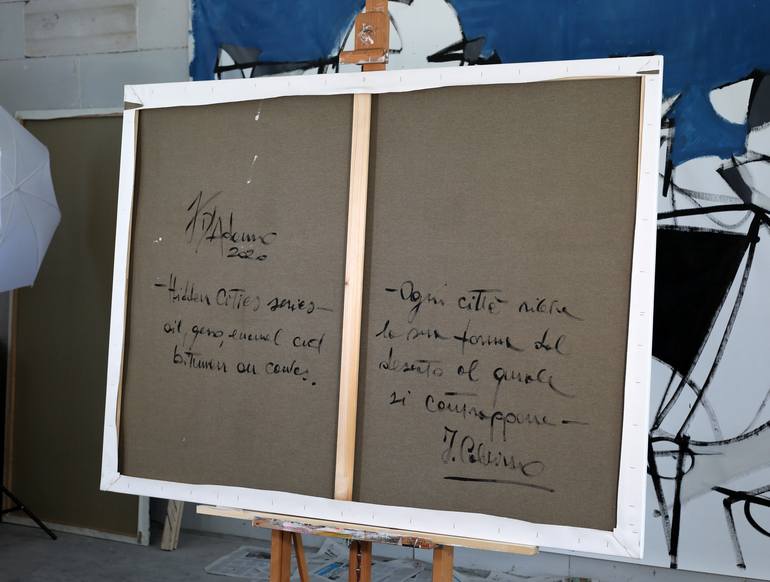 D'Adamo
2020
-Hidden Cities series-
oil, gesso, enamel and
bitumen on canvas.
-Ogni città riceve
la sua forma dal
deserto al quale
si contrappone-
I. Calvino